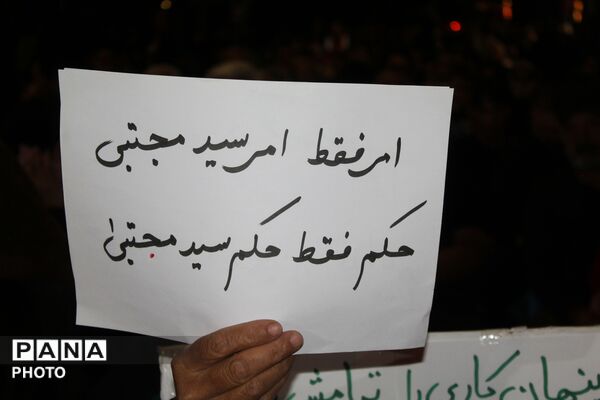 امر فقط امر سید مجتبی
حکم فقط حکم سید مجتبیٰ
PANA
PHOTO
پنهان کاری را